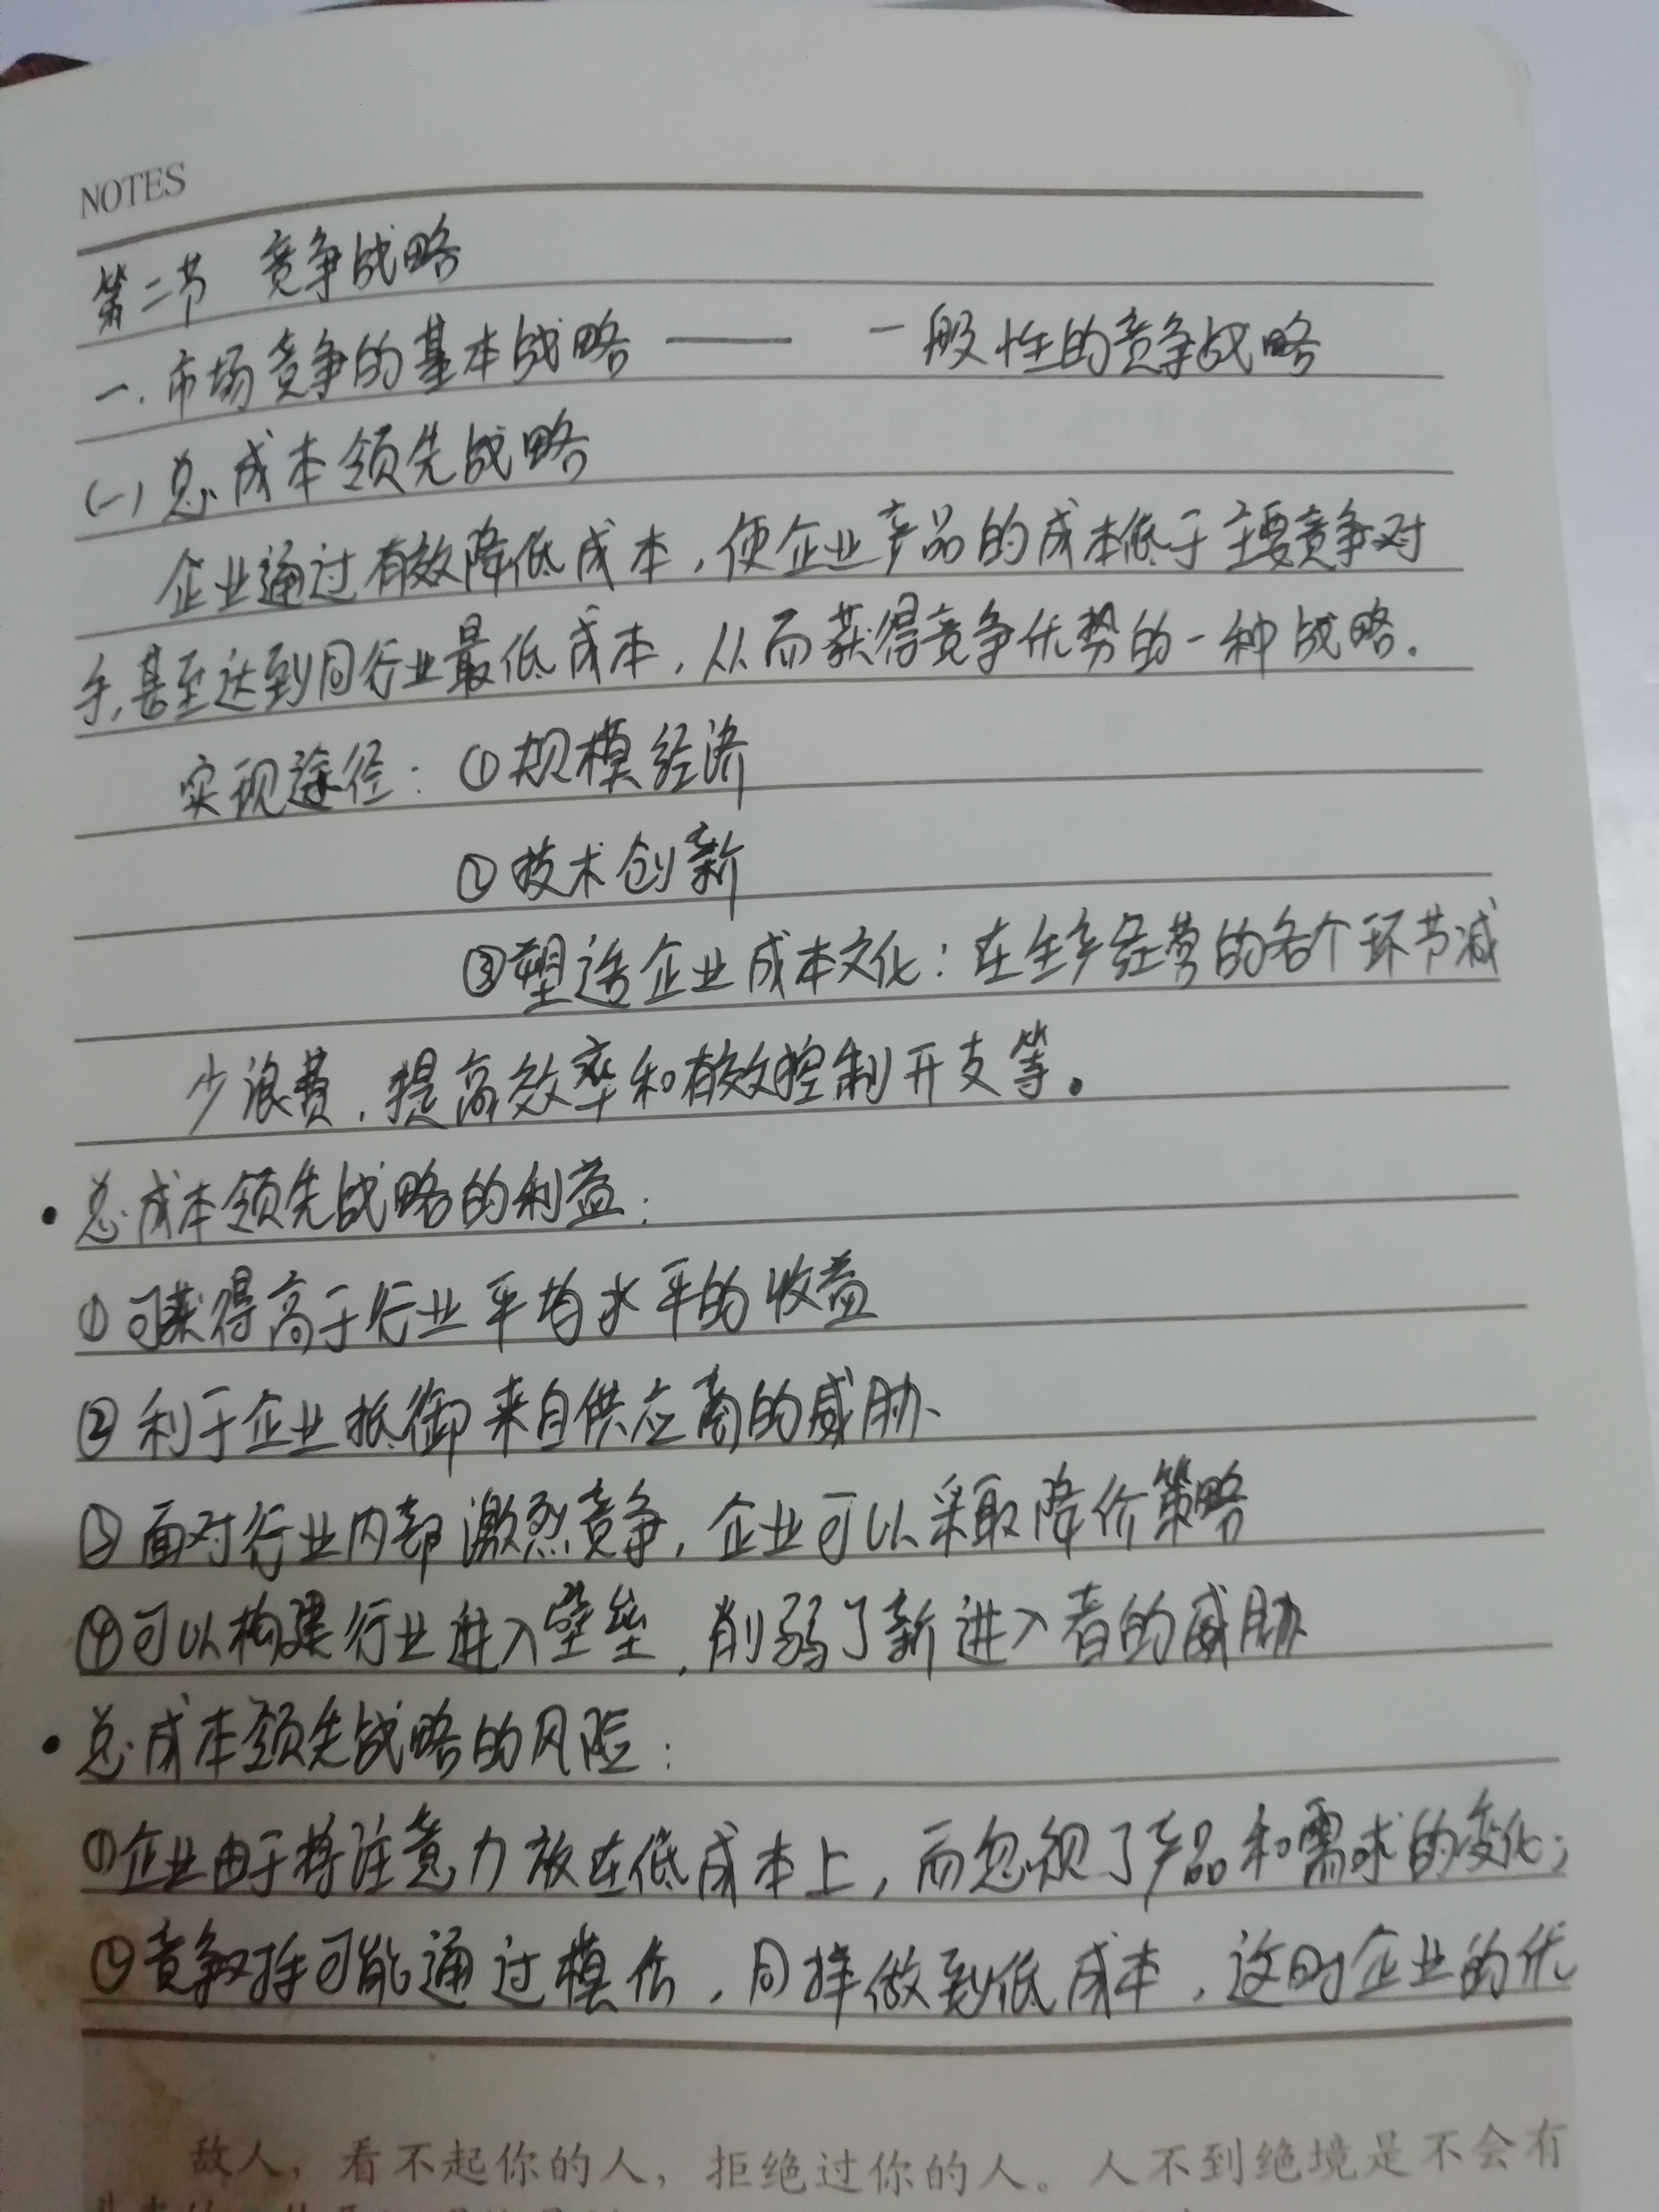 NOTES
第二节 竞争战略
一.市场竞争的基本战略 —— 一般性的竞争战略
(一)总成本领先战略
企业通过有效降低成本,使企业产品的成本低于主要竞争对
手,甚至达到同行业最低成本,从而获得竞争优势的一种战略.
实现途径:①规模经济
②技术创新
③塑造企业成本文化:在生产经营的各个环节减
少浪费,提高效率和有效控制开支等。
•总成本领先战略的利益:
①可获得高于行业平均水平的收益
②利于企业抵御来自供应商的威胁、
③面对行业内部激烈竞争,企业可以采取降价策略
④可以构建行业进入壁垒,削弱了新进入者的威胁
•总成本领先战略的风险:
①企业由于将注意力放在低成本上,而忽视了产品和需求的变化;
②竞争对手可能通过模仿,同样做到低成本,这时企业的优
敌人,看不起你的人,拒绝过你的人。人不到绝境是不会有